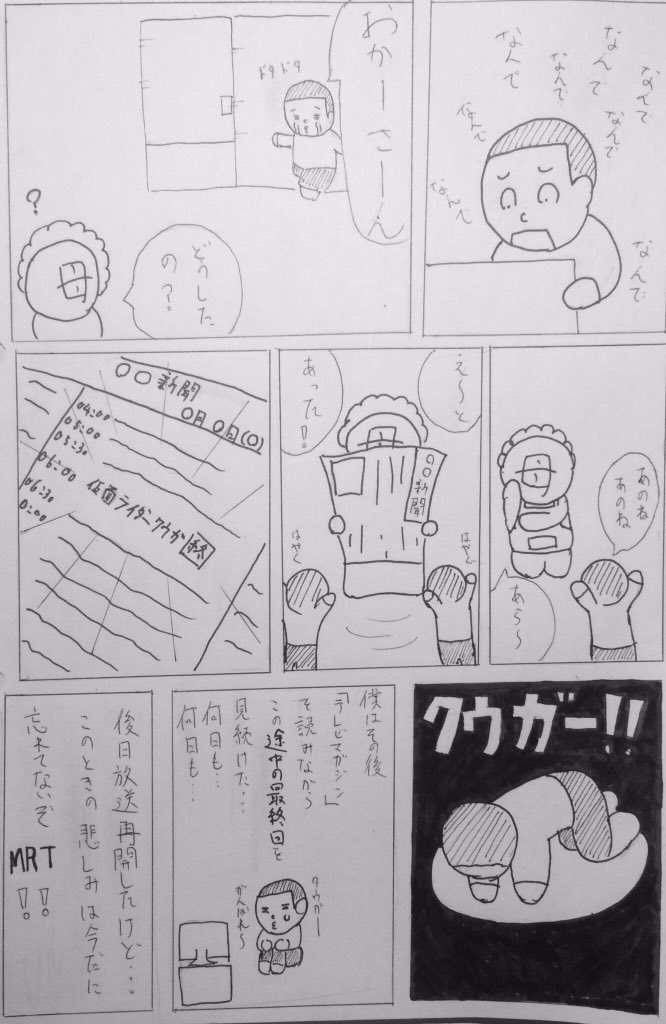 なんで
なんで
なんで
なんで
なんで
なんで
なんで
なんで
おかーさーん
ドタドタ
?
母
どうした
の?
あのね
あのね
母
あら〜
え〜と
あった!
母
〇〇新聞
はやく
はやく
〇〇新聞
〇月〇日(〇)
04:00
05:00
05:30
06:00 仮面ライダークウガ 終
06:30
0:00
クウガー!!
僕はその後
「テレビマガジン」
を読みながら
この途中の最終回を
見続けた…
何日も…
何日も…
クウガー
がんばれ〜
後日放送再開したけど…
このときの悲しみは今だに
忘れてないぞ
MRT
!!